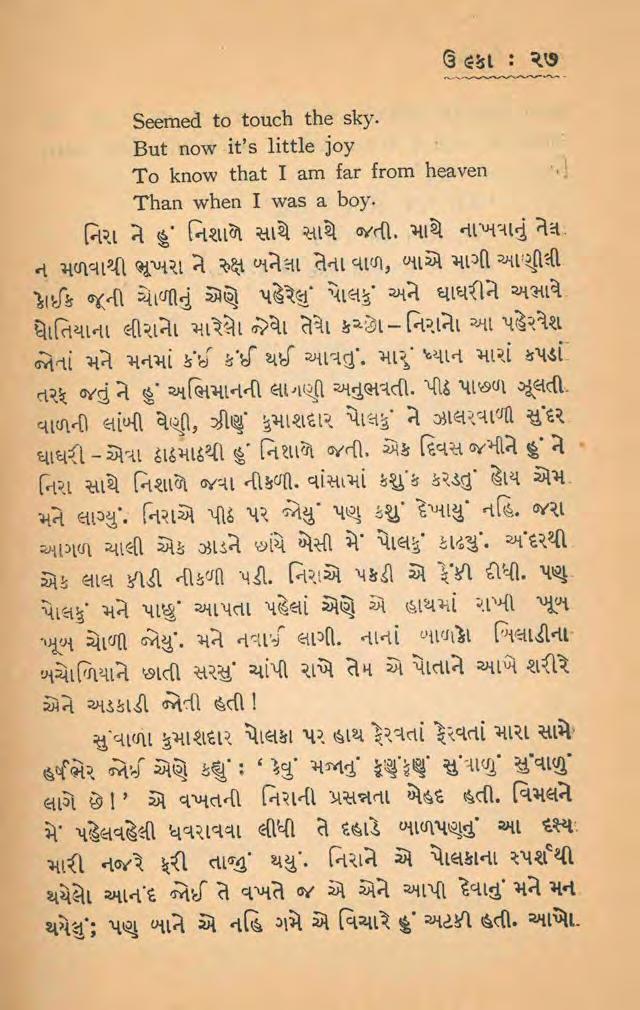 ઉલ્કા : ૨૭
Seemed to touch the sky.
But now it's little joy
To know that I am far from heaven
Than when I was a boy.
નિરા ને હું નિશાળે સાથે સાથે જતી. માથે નાખવાનું તેલ
ન મળવાથી ભૂખરા ને રુક્ષ બનેલા તેના વાળ, બાએ માગી આણીલી
કોઈક જૂની ચોળીનું એણે પહેરેલું પોલકું અને ઘાઘરીને અભાવે
ધોતિયાના લીરાનો મારેલો જેવો તેવો કચ્છો – નિરાનો આ પહેરવેશ
જોતાં મને મનમાં કંઈ કંઈ થઈ આવતું. મારું ધ્યાન મારાં કપડાં
તરફ જતું ને હું અભિમાનની લાગણી અનુભવતી. પીઠ પાછળ ઝૂલતી
વાળની લાંબી વેણી, ઝીણું કુમાશદાર પોલકું ને ઝાલરવાળી સુંદર
ઘાઘરી – એવા ઠાઠમાઠથી હું નિશાળે જતી. એક દિવસ જમીને હું ને
નિરા સાથે નિશાળે જવા નીકળી. વાંસામાં કશુંક કરડતું હોય એમ
મને લાગ્યું. નિરાએ પીઠ પર જોયું પણ કશું દેખાયું નહિ. જરા
આગળ ચાલી એક ઝાડને છાંયે બેસી મેં પોલકું કાઢ્યું. અંદરથી
એક લાલ કીડી નીકળી પડી. નિરાએ પકડી એ ફેંકી દીધી. પણ
પોલકું મને પાછું આપતા પહેલાં એણે એ હાથમાં રાખી ખૂબ
ખૂબ ચોળી જોયું. મને નવાઈ લાગી. નાનાં બાળકો બિલાડીના
બચોળિયાને છાતી સરસું ચાંપી રાખે તેમ એ પોતાને આખે શરીરે
એને અડકાડી જોતી હતી !
સુંવાળા કુમાશદાર પોલકા પર હાથ ફેરવતાં ફેરવતાં મારા સામે
હર્ષભેર જોઈ એણે કહ્યું : ‘ કેવું મજાનું કૂણુંકૂણું સુંવાળું સુંવાળું
લાગે છે ! ’ એ વખતની નિરાની પ્રસન્નતા બેહદ હતી. વિમલને
મેં પહેલવહેલી ધવરાવવા લીધી તે દહાડે બાળપણનું આ દૃશ્ય
મારી નજરે ફરી તાજું થયું. નિરાને એ પોલકાના સ્પર્શથી
થયેલો આનંદ જોઈ તે વખતે જ એ એને આપી દેવાનું મને મન
થયેલું; પણ બાને એ નહિ ગમે એ વિચારે હું અટકી હતી. આખો